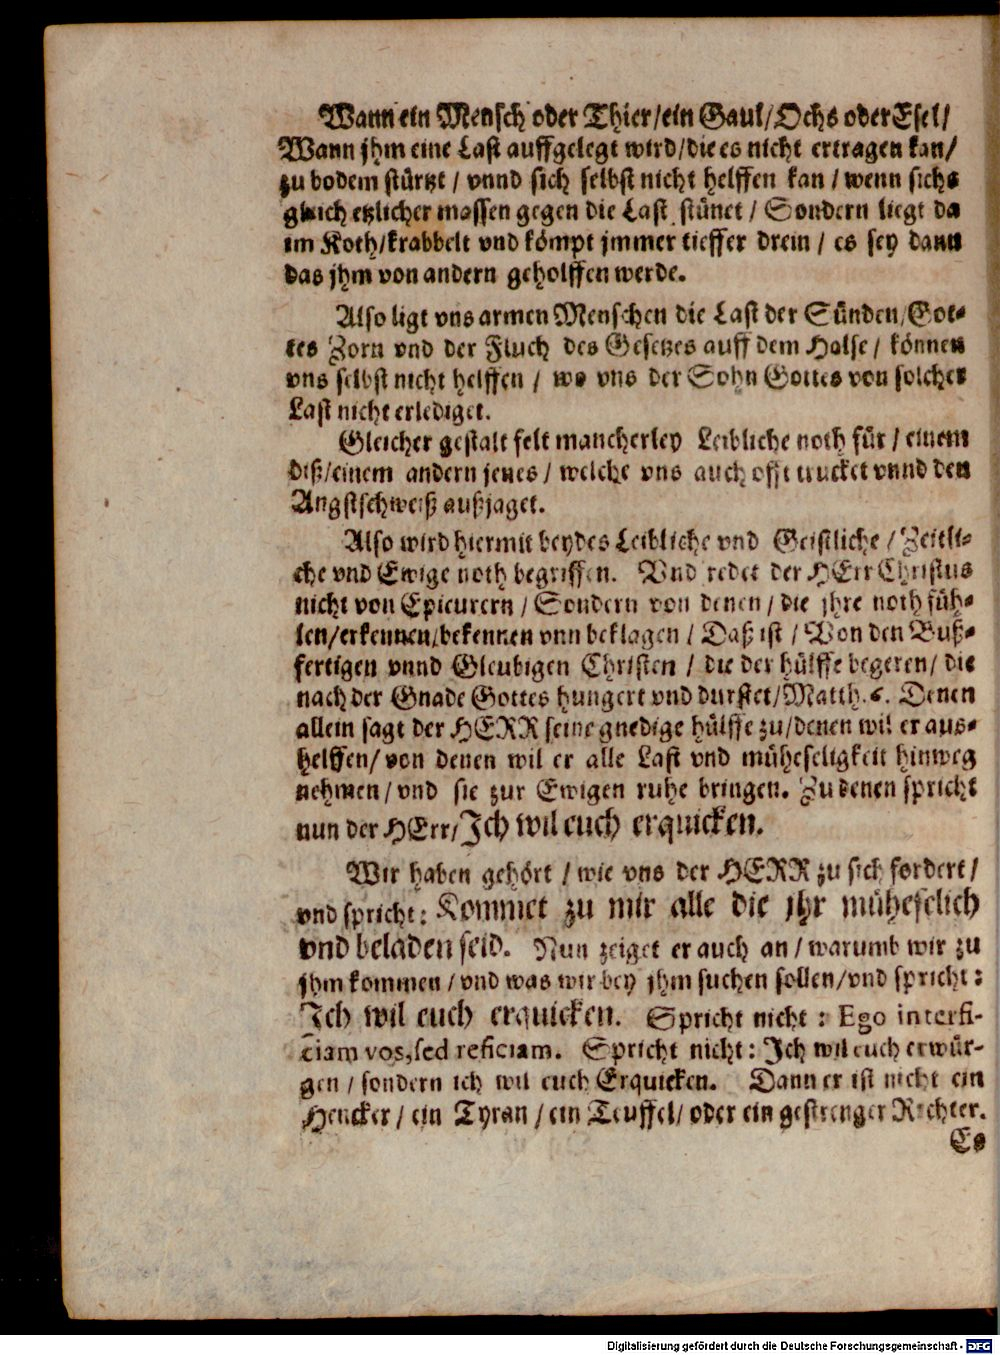 Wann ein Mensch oder Thier/ein Gaul/Ochs oder Esel/
Wann jhm eine Last auffgelegt wird/die es nicht ertragen kan/
zu bodem stürtzt / vnnd sich selbst nicht helffen kan / wenn sichs
gleich etzlicher massen gegen die Last stünet / Sondern liegt da
im Koth/krabbelt vnd kömpt jmmer tieffer drein / es sey dann
das jhm von andern geholffen werde.
Also ligt vns armen Menschen die Last der Sünden/Got-
tes Zorn vnd der Fluch des Gesetzes auff dem Halse / können
vns selbst nicht helffen / wo vns der Sohn Gottes von solcher
Last nicht erlediget.
Gleicher gestalt felt mancherley Leibliche noth für / einem
diß/einem andern jenes / welche vns auch offt trucket vnnd den
Angstschweiß außjaget.
Also wird hiermit beydes Leibliche vnd Geistliche / Zeitli-
che vnd Ewige noth begriffen. Vnd redet der HErr Christus
nicht von Epicurern / Sondern von denen / die jhre noth füh-
len/erkennen/bekennen vnn beklagen / Daß ist / Von den Buß-
fertigen vnnd Gleubigen Christen / die der hülffe begeren/ die
nach der Gnade Gottes hungert vnd durstet/Matth. 6. Denen
allein sagt der HERR seine gnedige hülffe zu/denen wil er aus-
helffen/ von denen wil er alle Last vnd müheseligkeit hinweg
nehmen / vnd sie zur Ewigen ruhe bringen. Zu denen spricht
nun der HErr/Ich wil euch erquicken.
Wir haben gehört / wie vns der HERR zu sich fordert /
vnd spricht: Kommet zu mir alle die jhr müheselich
vnd beladen seid. Nun zeiget er auch an / warumb wir zu
jhm kommen / vnd was wir bey jhm suchen sollen/vnd spricht:
Ich wil euch erquicken. Spricht nicht: Ego interfi-
ciam vos, sed reficiam. Spricht nicht: Ich wil euch erwür-
gen / sondern ich wil euch Erquicken. Dann er ist nicht ein
Hencker / ein Tyran / ein Teuffel/ oder ein gestrenger Richter.
Es
Digitalisierung gefördert durch die Deutsche Forschungsgemeinschaft - DFG